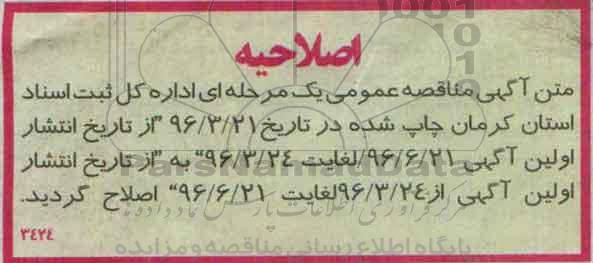 اصلاحیه
متن آگهی مناقصه عمومی یک مرحله ای اداره کل ثبت اسناد
استان کرمان چاپ شده در تاریخ ۹۶/۳/۲۱ "از تاریخ انتشار
اولین آگهی ۹۶/۶/۲۱/لغایت ۹۶/۳/۲۴" به "از تاریخ انتشار
اولین آگهی از۹۶/۳/۲۴لغایت ۹۶/۶/۲۱" اصلاح گردید.
۳۴۲۴
ParsNamadData
پایگاه اطلاع رسانی مناقصه و مزایده